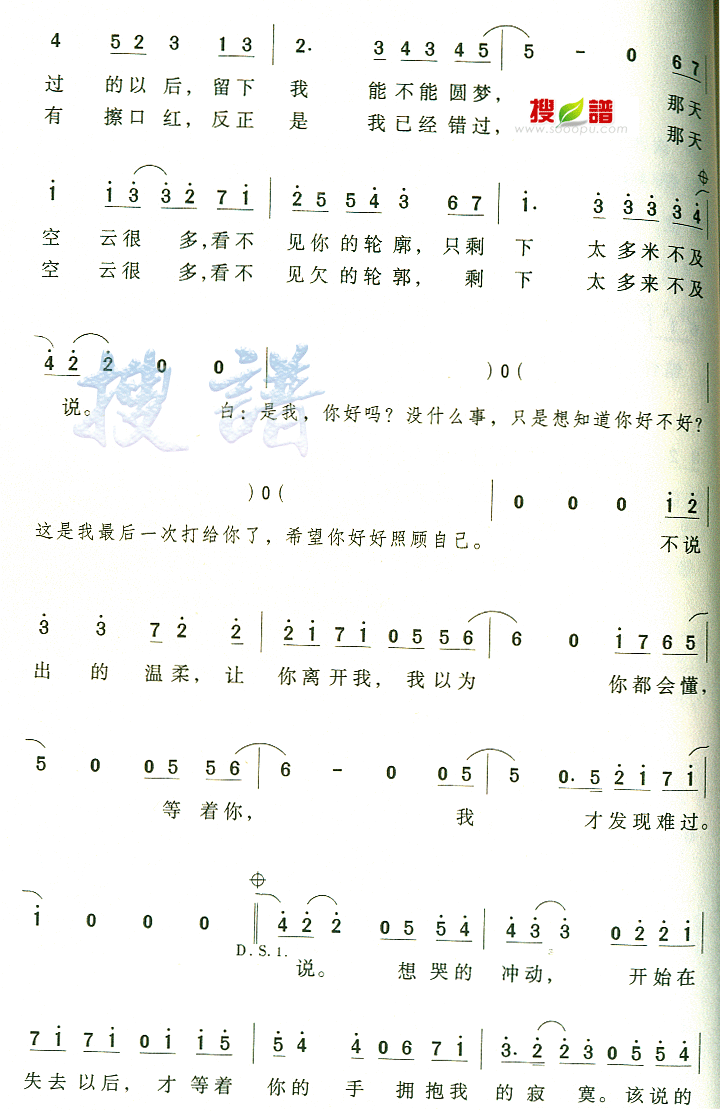 4 5 2 3 1 3 | 2. 3 4 3 4 5 | 5 - 0 6 7
过 的以后，留下 我 能不能圆梦， 那天
有 擦口红，反正 是 我已经错过， 那天
搜谱
www.sooopu.com
1 1 3 3 2 7 1 | 2 5 5 4 3 6 7 | 1. 3 3 3 3 4
空 云很 多，看不 见你的轮廓，只剩 下 太多米不及
空 云很 多，看不 见欠的轮郭， 剩 下 太多来不及
4 2 2 0 0 | )0( |
说。 白：是我，你好吗？没什么事，只是想知道你好不好？
搜譜
)0( | 0 0 0 1 2
这是我最后一次打给你了，希望你好好照顾自己。 不说
3 3 7 2 2 | 2 1 7 1 0 5 5 6 | 6 0 1 7 6 5
出 的 温柔，让 你离开我，我以为 你都会懂，
5 0 0 5 5 6 | 6 - 0 0 5 | 5 0. 5 2 1 7 1
等着你， 我 才发现难过。
1 0 0 0 ‖ 4 2 2 0 5 5 4 | 4 3 3 0 2 2 1
D.S.1. 说。 想哭的 冲动， 开始在
7 1 7 1 0 1 1 5 | 5 4 4 0 6 7 1 | 3. 2 2 3 0 5 5 4
失去以后，才等着 你的 手 拥抱我 的寂 寞。该说的